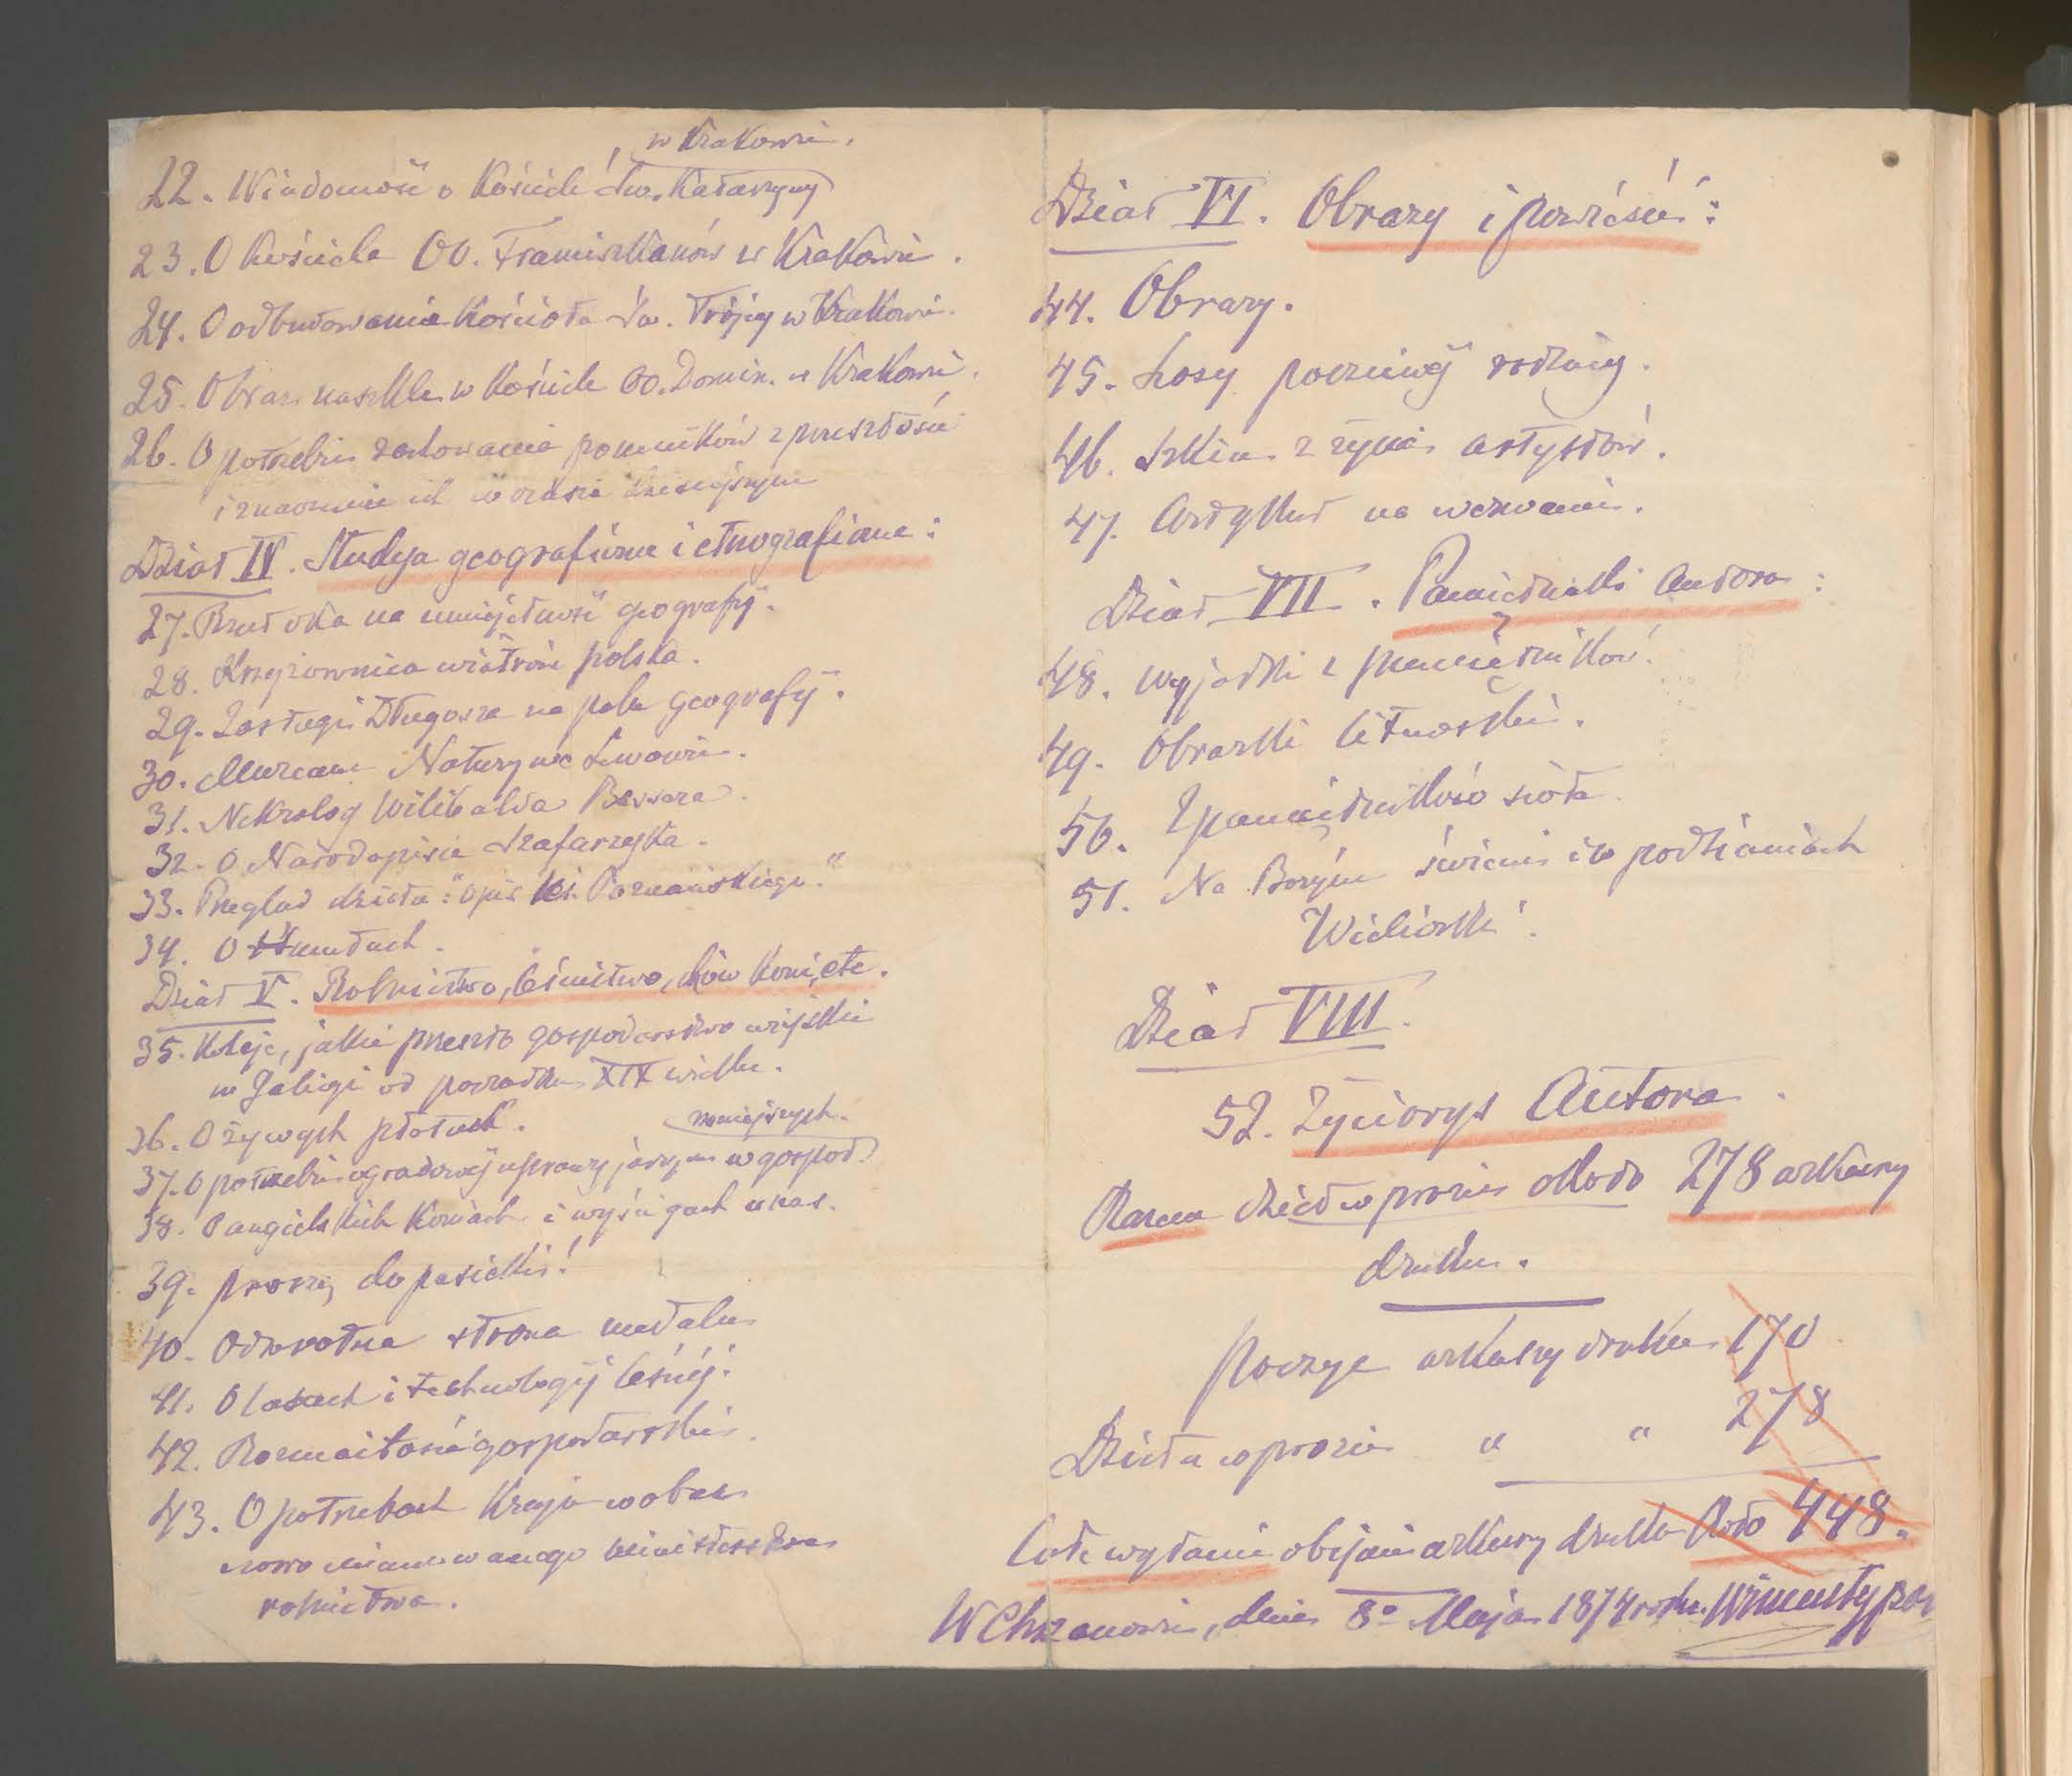 w Krakowie.
22. Wiadomość o Kościele Św. Katarzyny
23. O kościele OO. Franciszkanów w Krakowie.
24. O odbudowanie Kościoła Św. Trójcy w Krakowie.
25. Obraz na szkle w Kościele OO. Domin. w Krakowie.
26. O potrzebie zachowania pomników z przeszłości
i znaczenie ich w czasie dzisiejszym
Dział IV. Studyja geograficzne i etnograficzne:
27. Rzut oka na umiejętność geografij.
28. Krzyżownica wiatrów polska.
29. Zasługi Długosza na polu geografij.
30. Muzeum Natury we Lwowie.
31. Nekrolog Wilibalda Bessera.
32. O Narodopisie Szafarzyka.
33. Przegląd dzieła: "Opis ks. Poznańskiego."
34. O Żmudach.
Dział V. Rolnictwo, leśnictwo, chów koni, etc.
35. Koleje, jakie przeszło gospodarstwo wiejskie
w Galicyi od początku XIX wieku.
36. O żywych płotach.
mniejszych.
37. O potrzebie ogradowéj uprawy jarzyn w gospod.
38. O angielskich koniach i wyścigach u nas.
39. Proszę do pasieki!
40. Odwrotna strona medalu
41. O lasach i technologij leśnéj.
42. Rozmaitości gospodarskie.
43. O potrzebach Kraju wobec
nowo mianowanego ministerstwa
rolnictwa.
Dział VI. Obrazy i powieści:
44. Obrazy.
45. Losy poczciwéj rodziny.
46. Szkice z życia artystów.
47. Artykuł na wezwanie.
Dział VII. Pamiętniki Autora:
48. Wyjątki z pamiętników.
49. Obrazki litewskie.
50. Z pamiętników sioła.
51. Na Bożym świecie i w podziemiach
Wieliczki.
Dział VIII.
52. Życiorys Autora.
Razem dzieł w prozie około 278 arkuszy
druku.
Poezye arkuszy druku 170
Dzieła w prozie " " 278
Całe wydanie obejmie arkuszy druku około 448.
W Chrzanowie, dnia 8o Maja 1874 roku. Wincenty Pol